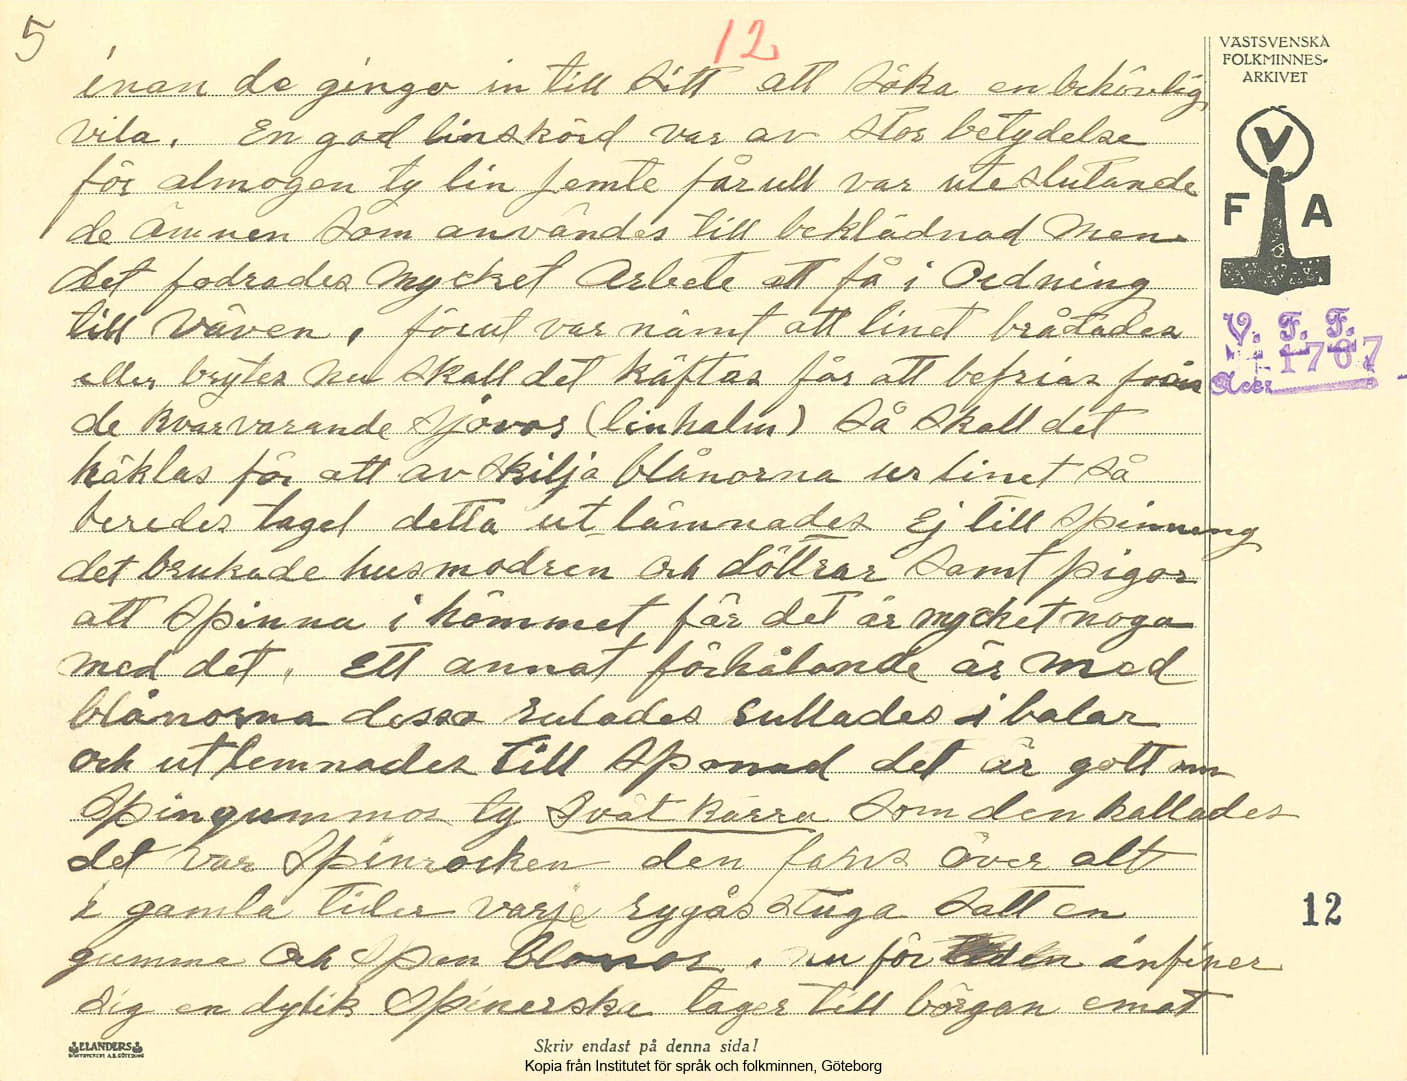 5
12
VÄSTSVENSKA
FOLKMINNES-
ARKIVET
V
F A
V. F. F.
1767
Accr
inan de gingo in till sitt att söka en behövlig
vila. En god linskörd var av stor betydelse
för almogen ty lin jemte fårull var uteslutande
de ämnen som användes till beklädnad Men
det fodrades mycket Arbete att få i Ordning
till Väven, förut var nämt att linet brådades
eller brytes nu skall det käftas för att befrias från
de kvarvarande sjövor (linhalm) Så skall det
häklas för att av skilja blånorna ur linet Så
beredes taget detta ut lämnades Ej till spinning
det brukade husmodren och döttrar samt pigor
att spinna i hömmet får det är mycket noga
med det. Ett annat förhålande är med
blånorna dessa rulades i balar
och utlemnades till Sponad det är gott om
Spingummor ty Svåt kärra som den kallades
det var Spinrocken den fans över alt
i gamla tider varje rygåsstuga satt en
gumma och span blånor. nu för tiden änfiner
sig en dylik Spinerska tager till börgan emot
12
ELANDERS
Skriv endast på denna sida!
Kopia från Institutet för språk och folkminnen, Göteborg